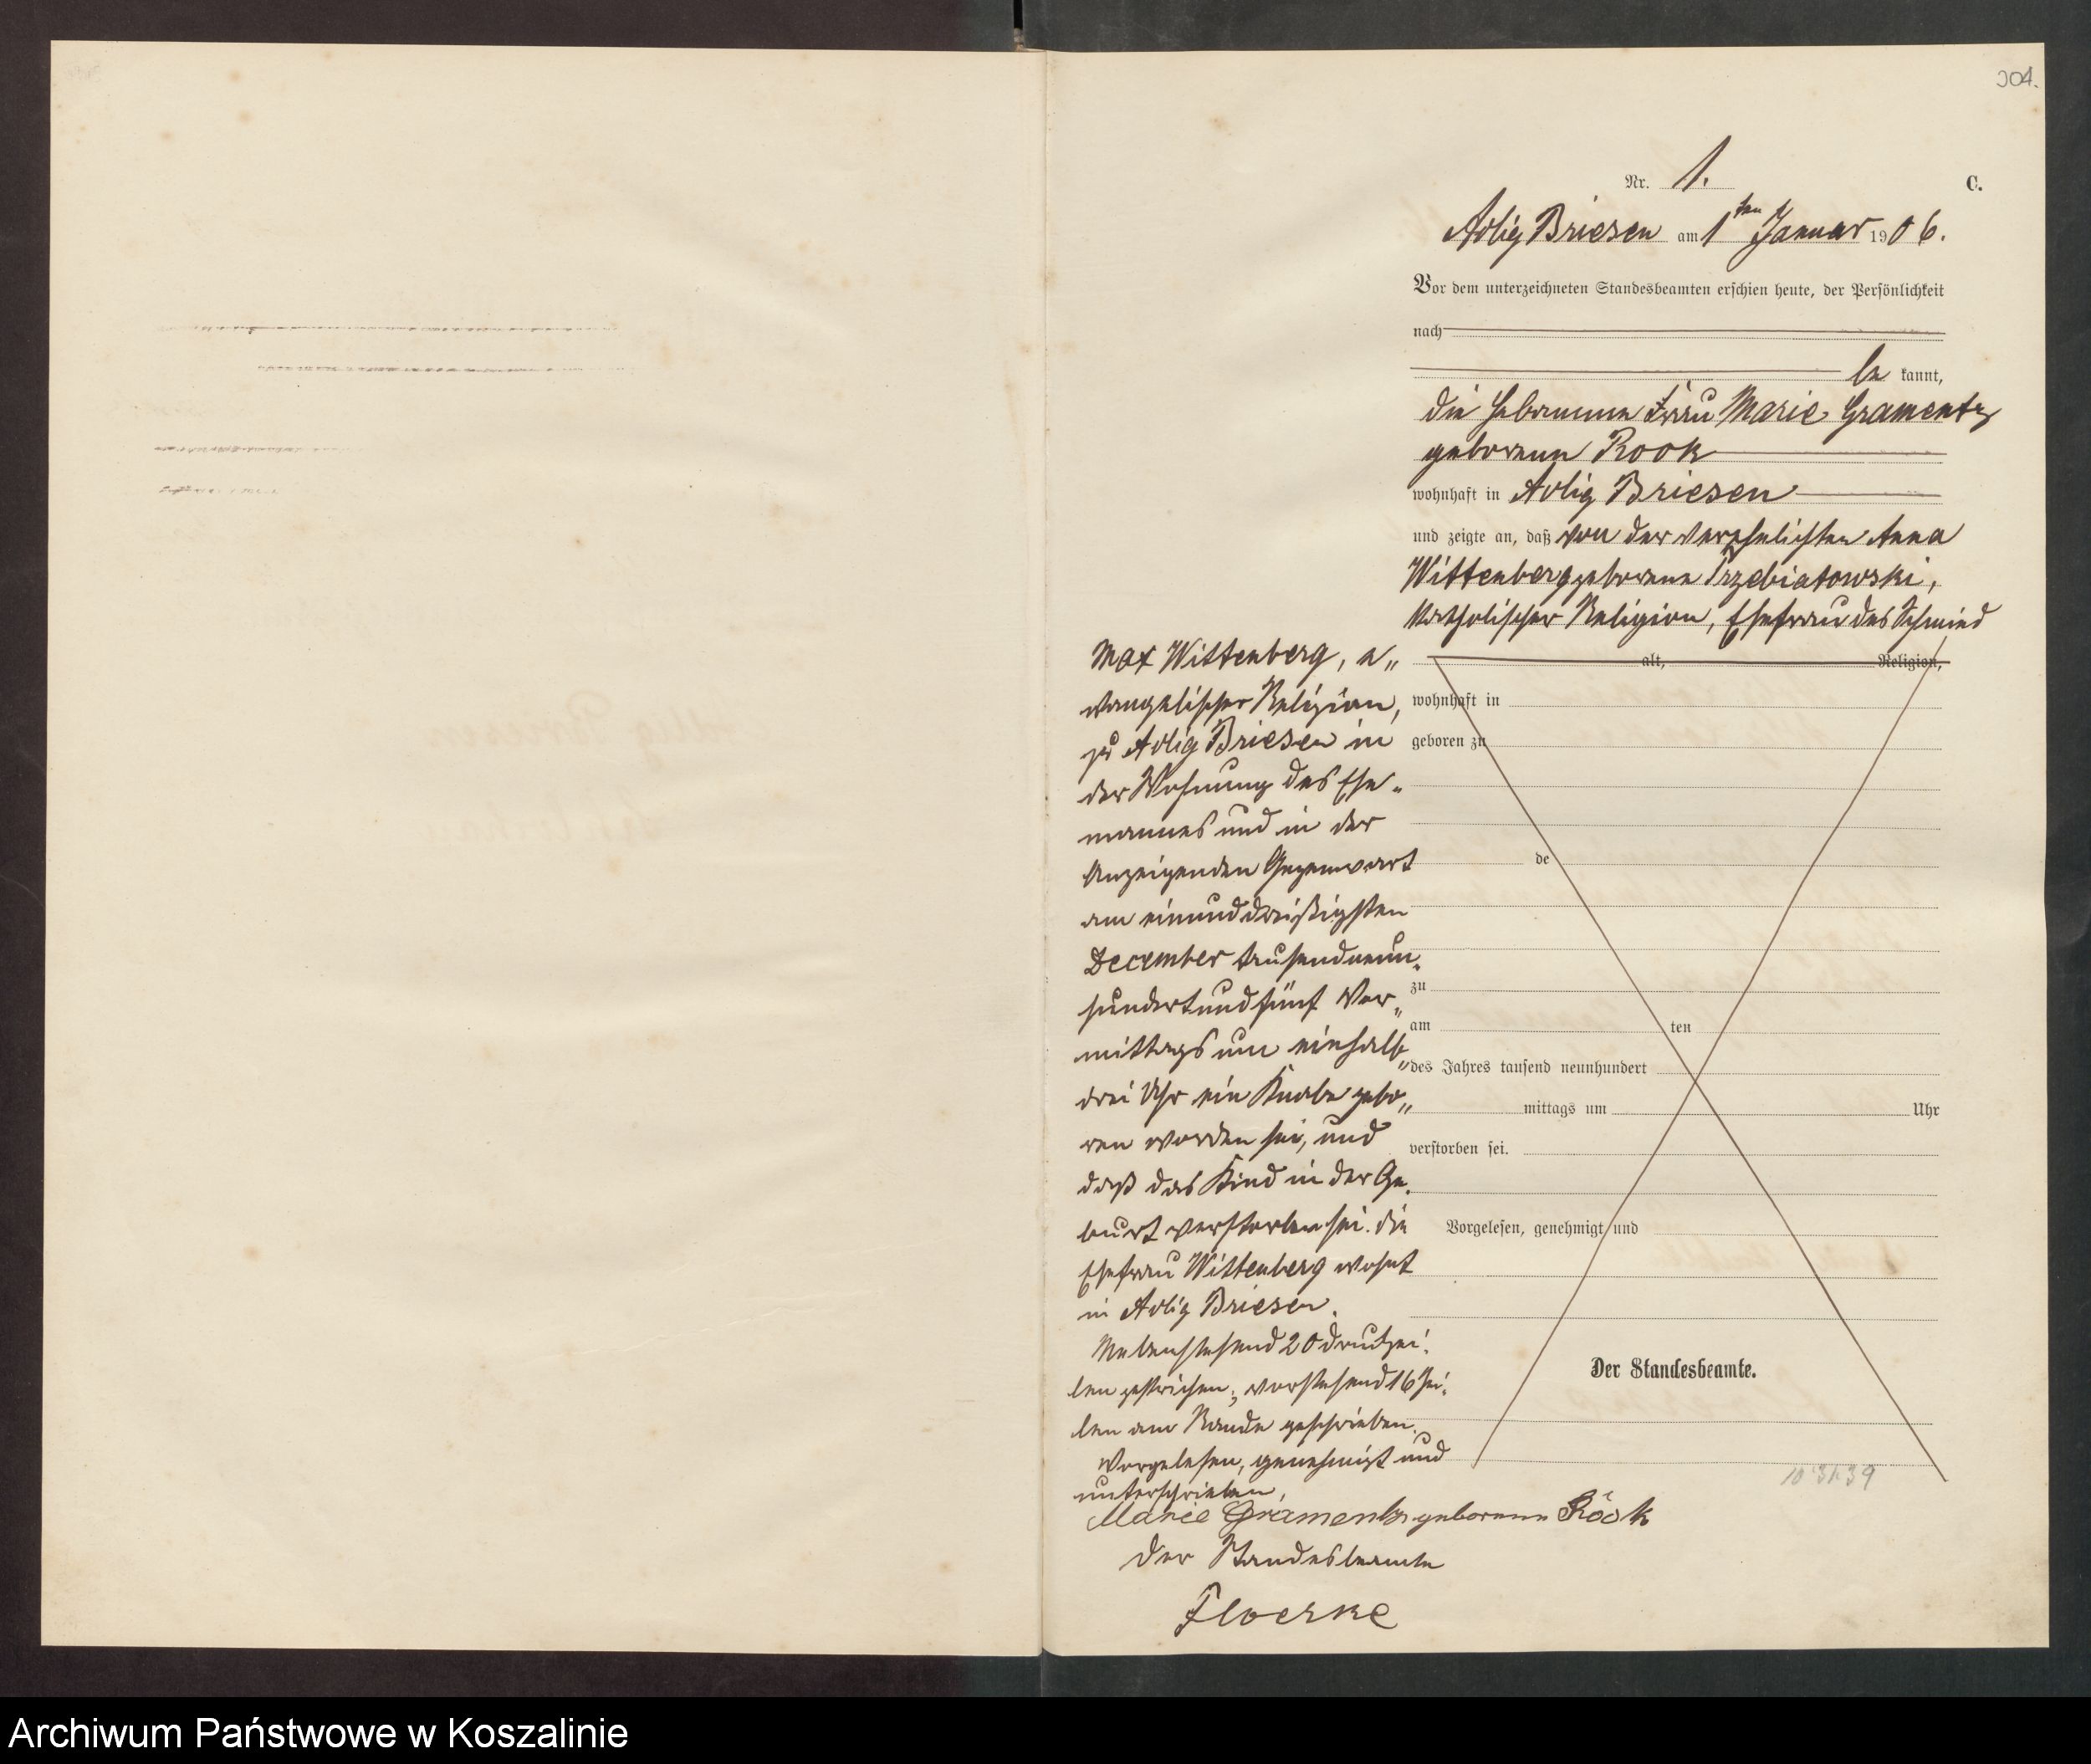 304.
Nr. 1.
C.
Adlig Briesen am 1ten Januar 1906.
Vor dem unterzeichneten Standesbeamten erschien heute, der Persönlichkeit
nach
be kannt,
die Hebamme Frau Marie Gramentz
geborene Rook
wohnhaft in Adlig Briesen
und zeigte an, daß von der verehelichten Anna
Wittenberg geborene Trzebiatowski,
katholischer Religion, Ehefrau des Schmied
Max Wittenberg, e„
vangelischer Religion,
zu Adlig Briesen in
der Wohnung des Ehe„
mannes und in der
Anzeigenden Gegenwart
am einunddreißigsten
December tausendneun„
hundertundfünf Vor„
mittags um einhalb„
drei Uhr ein Knabe gebo„
ren worden sei, und
daß das Kind in der Ge„
burt verstorben sei. Die
Ehefrau Wittenberg wohnt
in Adlig Briesen.
Nebenstehend 20 Druckzei„
len gestrichen, vorstehend 16 Zei„
len am Rande geschrieben.
Vorgelesen, genehmigt und
unterschrieben,
Marie Gramentz geborene Röok
Der Standesbeamte
Floerke
alt, Religion,
wohnhaft in
geboren zu
de
zu
am ten
des Jahres tausend neunhundert
mittags um Uhr
verstorben sei.
Vorgelesen, genehmigt und
Der Standesbeamte.
Archiwum Państwowe w Koszalinie